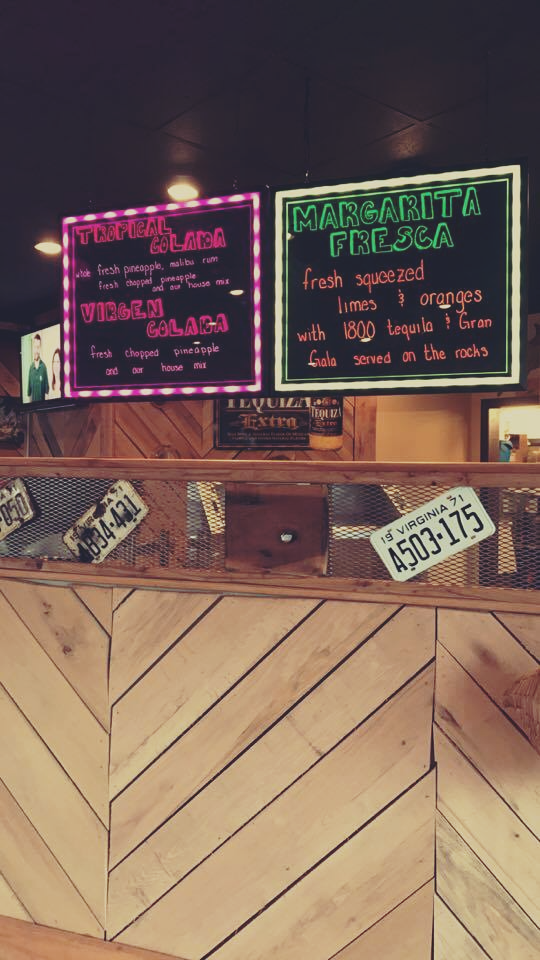 TROPICAL
COLADA
whole fresh pineapple, malibu rum
fresh chopped pineapple
and our house mix
VIRGEN
COLADA
fresh chopped pineapple
and our house mix
MARGARITA
FRESCA
fresh squeezed
limes & oranges
with 1800 tequila & Gran
Gala served on the rocks
TEQUIZA
Extra
TEQUIZA
050
A634-431
19 VIRGINIA 71
A503-175